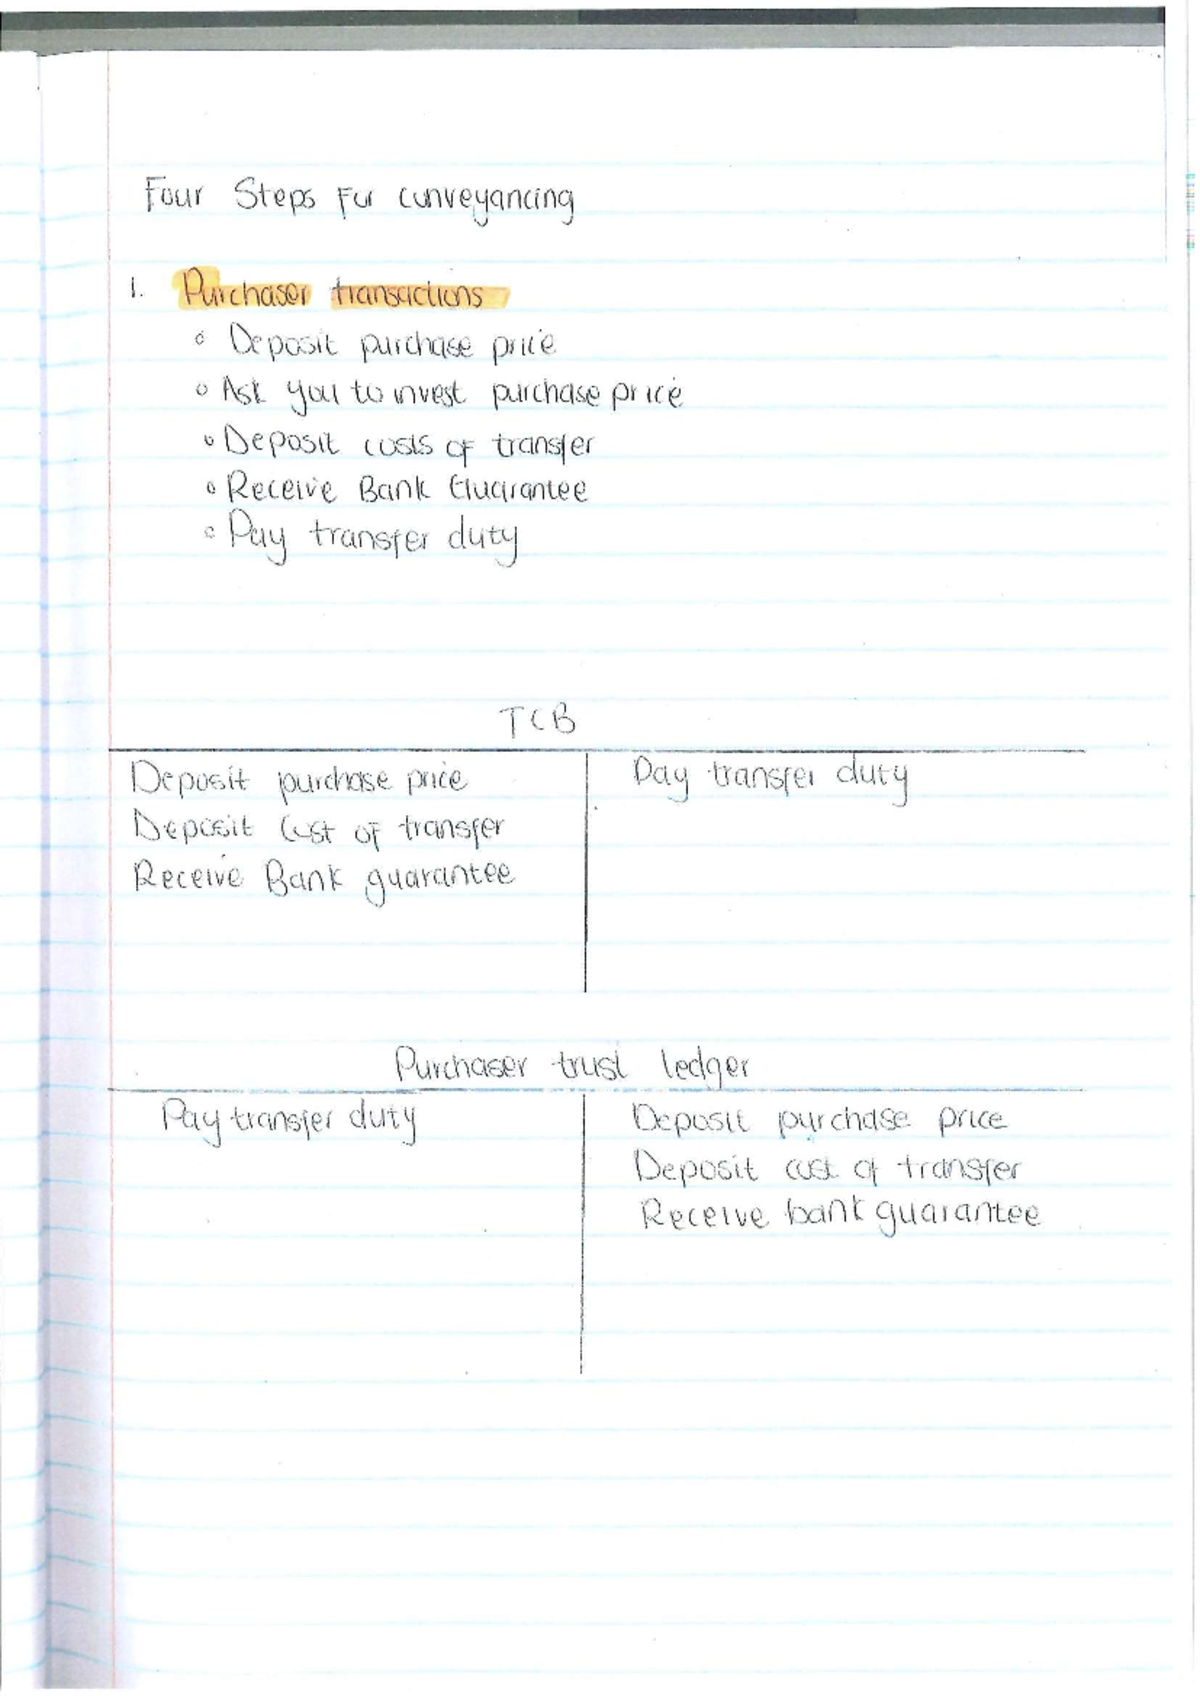 Four Steps For conveyancing
1. Purchaser transactions
Deposit purchase price
Ask you to invest purchase price
Deposit costs of transfer
Receive Bank Guarantee
Pay transfer duty
TCB
Deposit purchase price Pay transfer duty
Deposit Cost of transfer
Receive Bank guarantee
Purchaser trust ledger
Pay transfer duty Deposit purchase price
Deposit cost of transfer
Receive bank guarantee